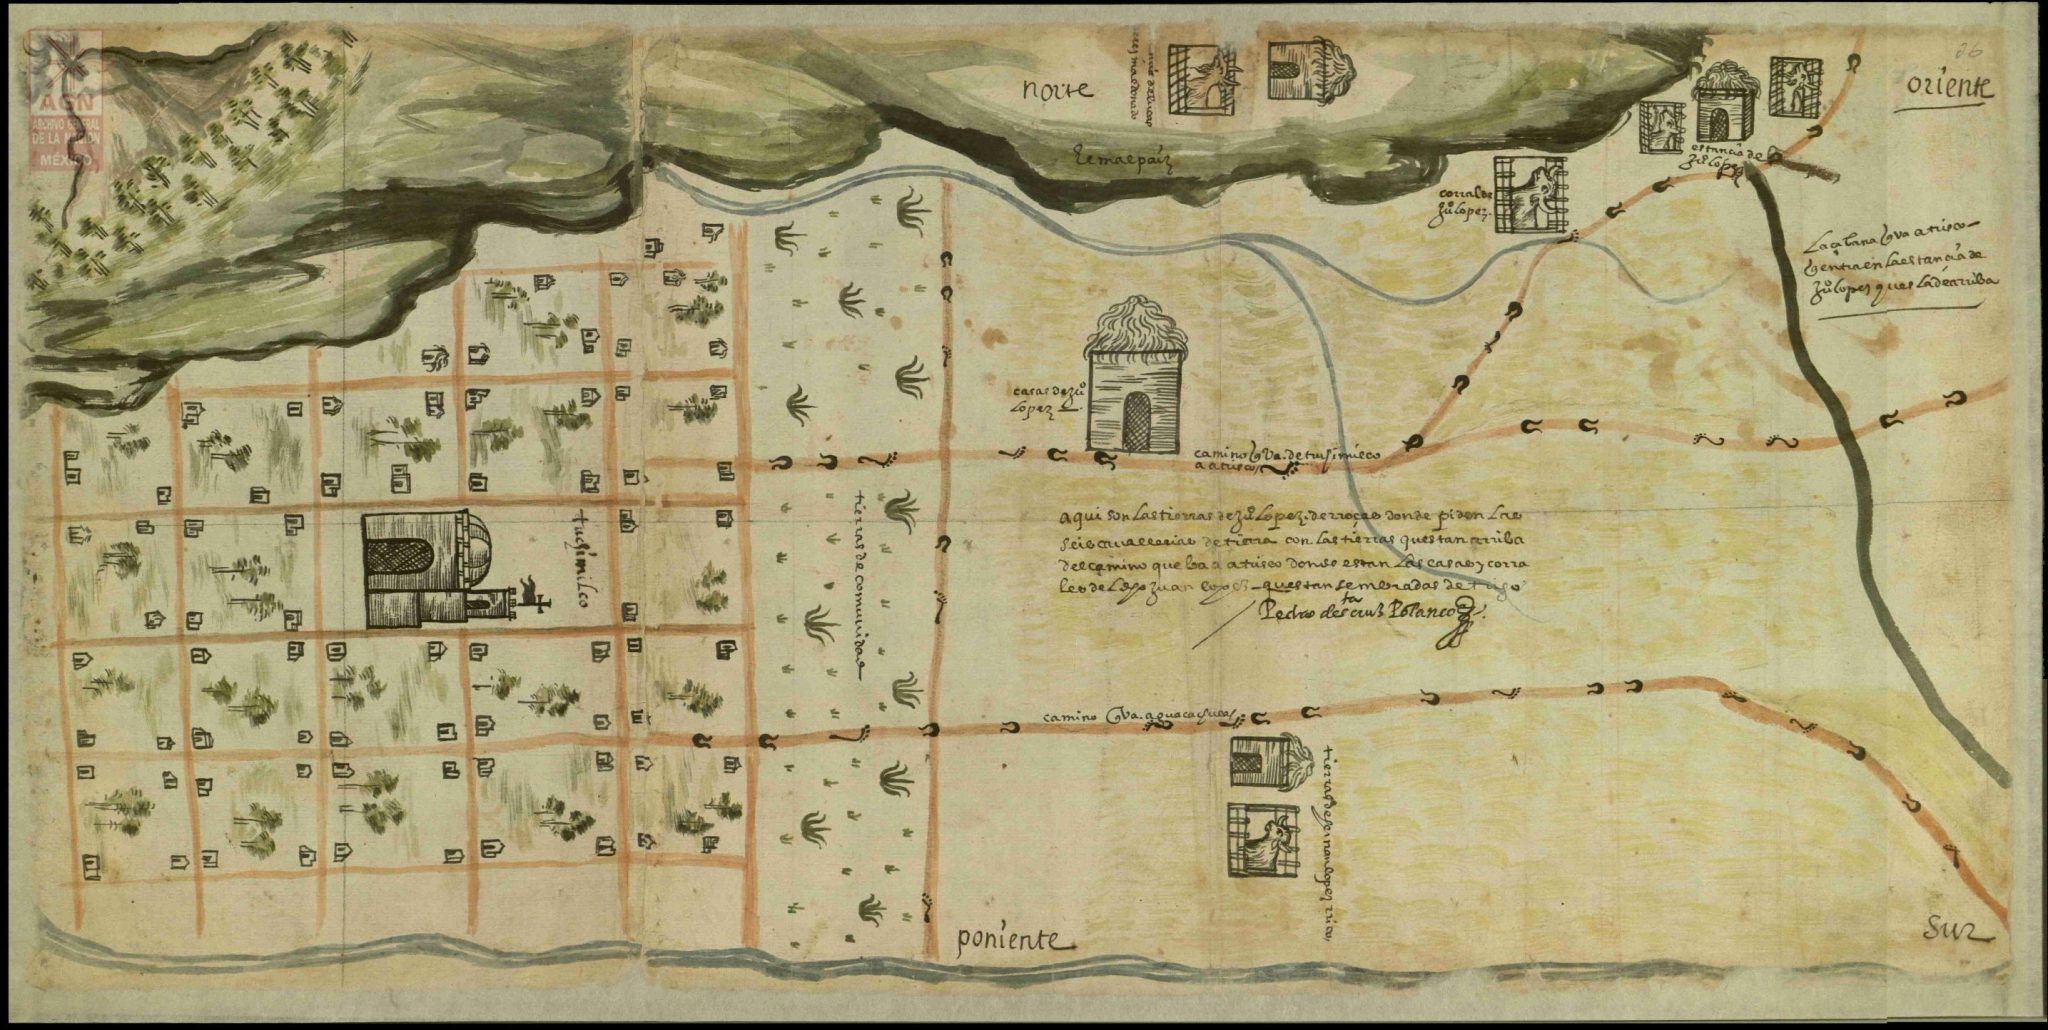 AGN
ARCHIVO GENERAL
DE LA NACIÓN
MÉXICO
norte
26
oriente
temalpaiz
estancia de
Ju° lopez
corral de
Ju° lopez
La çabana q va a tusco
q entra en la estancia de
Ju° lopez ques la de arriba
casas de Ju°
lopez
camino q va de tuchimilco
a atusco
tuchimilco
tierras de comunidad
aqui son las tierras de Ju° lopez de rroças donde piden las
seis cavallerias de tierra con las tierras questan arriba
del camino que ba a atusco donde estan las casas y corra
les de Juan lopez questan sembradas de trigo
Pedro de sta cruz Polanco
camino q va a guacachula
tierras de hernan lopez
poniente
sur